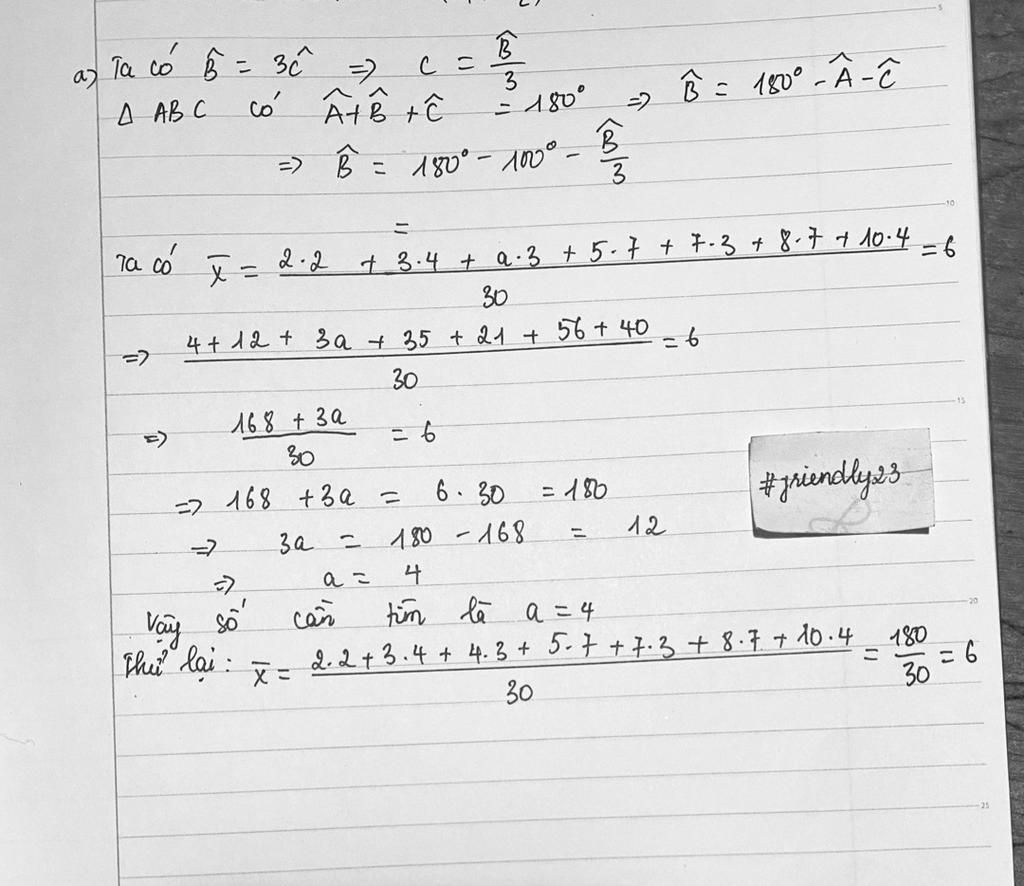 a) Ta có B̂ = 3Ĉ => C = B̂/3
Δ ABC có Â + B̂ + Ĉ = 180° => B̂ = 180° - Â - Ĉ
=> B̂ = 180° - 100° - B̂/3
=
Ta có x̄ = (2.2 + 3.4 + a.3 + 5.7 + 7.3 + 8.7 + 10.4)/30 = 6
=> (4 + 12 + 3a + 35 + 21 + 56 + 40)/30 = 6
=> (168 + 3a)/30 = 6
=> 168 + 3a = 6.30 = 180
#friendly23
=> 3a = 180 - 168 = 12
=> a = 4
Vậy số cần tìm là a = 4
Thử lại: x̄ = (2.2 + 3.4 + 4.3 + 5.7 + 7.3 + 8.7 + 10.4)/30 = 180/30 = 6
5
10
15
20
25